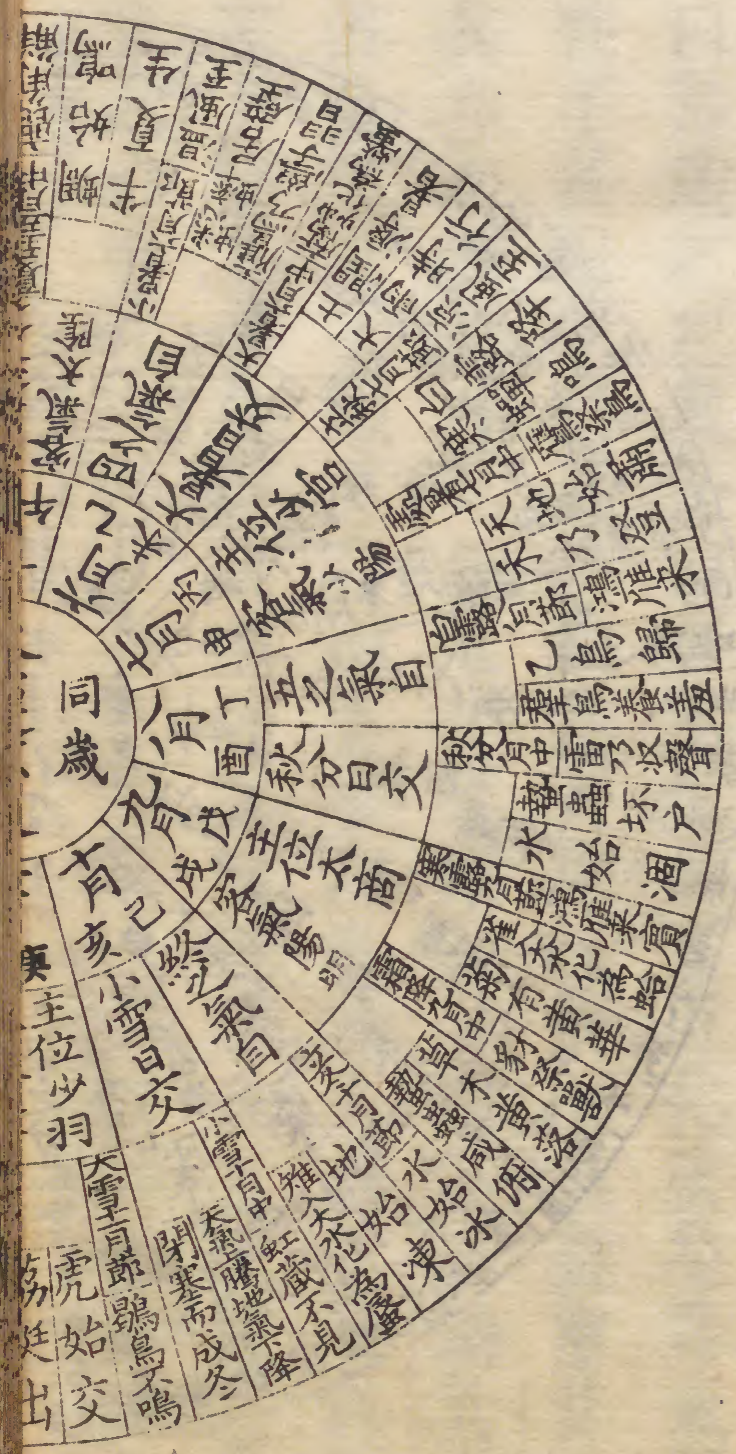 同歲
六月
己未
七月
丙申
八月
丁酉
九月
戊戌
十月
己亥
庚
客氣太陰
四之氣自
大暑日交
主位少宮
客氣少陽
五之氣自
秋分日交
主位太商
客氣陽明
終之氣自
小雪日交
主位少羽
鹿角解
蜩始鳴
半夏生
溫風至
大暑六月中
土潤溽暑
大雨時行
立秋七月節
涼風至
白露降
寒蟬鳴
處暑七月中
鷹祭鳥
天地始肅
禾乃登
白露八月節
鴻雁來
乙鳥歸
羣鳥養羞
秋分八月中
雷乃收聲
蟄蟲坏戶
水始涸
寒露九月節
鴻雁來賓
雀入大水化為蛤
菊有黃華
霜降九月中
豺祭獸
草木黃落
蟄蟲咸俯
立冬十月節
水始冰
地始凍
雉入大水化為蜃
小雪十月中
虹藏不見
天氣上騰地氣下降
閉塞而成冬
大雪十一月節
鶡鳥不鳴
虎始交
荔挺出